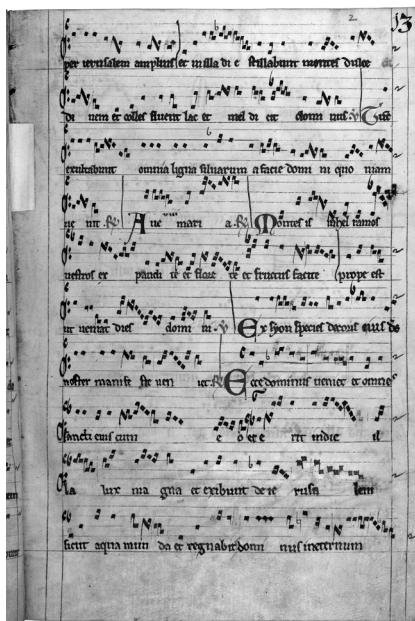 2 13
per ierusalem amplius et in illa di e stillabunt montes dulce di
di nem et colles fluent lac et mel di cit domi nus V Tunc
exultabunt omnia ligna siluarum a facie domi ni quo niam
ue nit R A ue mari a R Montes is rahel ramos
uestros ex pandi te et flore te et fructus facite prope est
ut ueniat dies domi ni V Ex syon species decoris eius ds
noster manifeste ueni et R Ecce dominus ueniet et omnes
sancti eius cum e o et e rit in die il
la lux ma gna et exibunt de ie rusa lem
sicut aqua mun da et regnabit domi nus ineternum